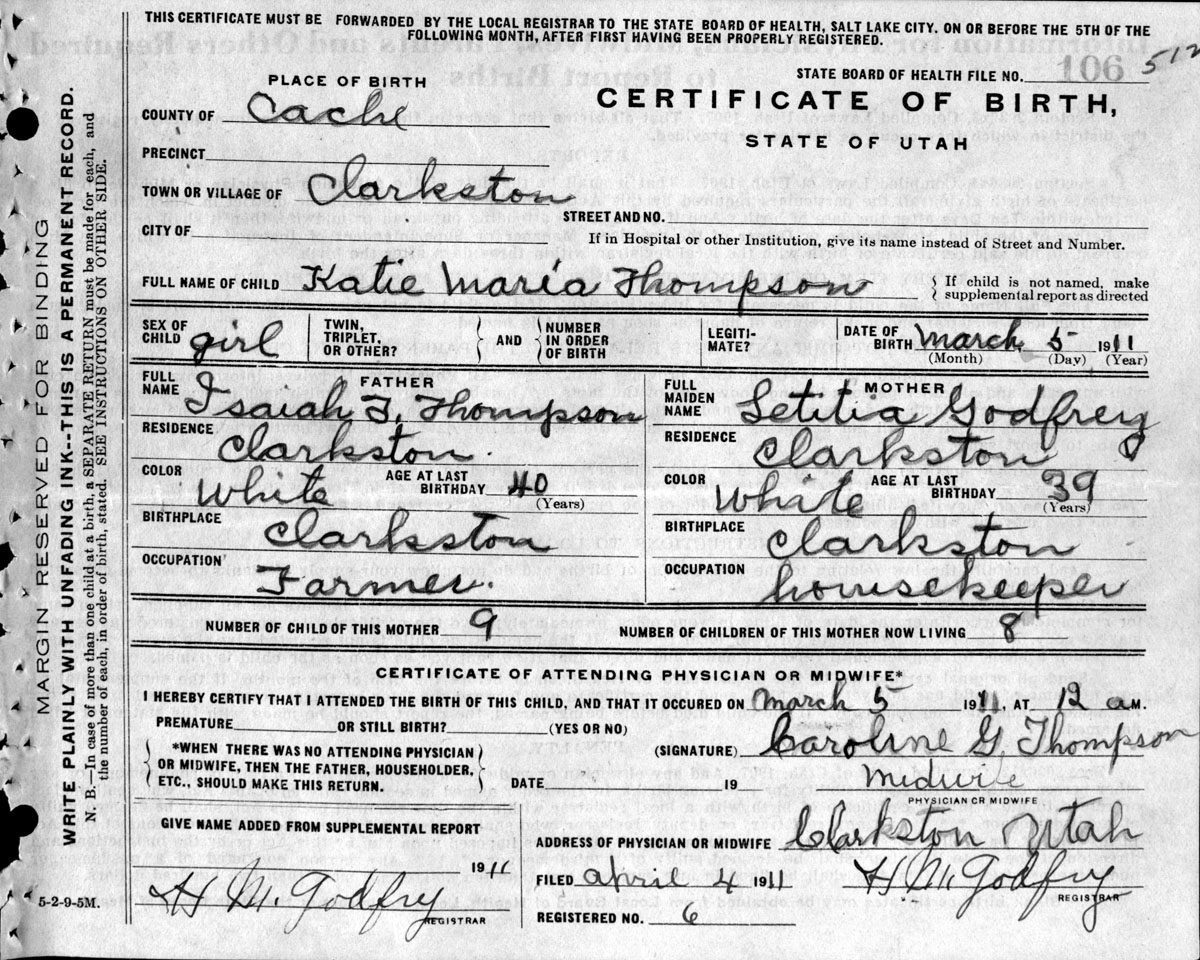 THIS CERTIFICATE MUST BE FORWARDED BY THE LOCAL REGISTRAR TO THE STATE BOARD OF HEALTH, SALT LAKE CITY. ON OR BEFORE THE 5TH OF THE
FOLLOWING MONTH, AFTER FIRST HAVING BEEN PROPERLY REGISTERED.
512
106
PLACE OF BIRTH
STATE BOARD OF HEALTH FILE NO.
COUNTY OF Cache
CERTIFICATE OF BIRTH,
STATE OF UTAH
PRECINCT
TOWN OR VILLAGE OF Clarkston
STREET AND NO.
CITY OF
If in Hospital or other Institution, give its name instead of Street and Number.
FULL NAME OF CHILD Katie Maria Thompson
If child is not named, make
supplemental report as directed
SEX OF
CHILD girl
TWIN,
TRIPLET,
OR OTHER?
AND
NUMBER
IN ORDER
OF BIRTH
LEGITI-
MATE?
DATE OF
BIRTH March 5 1911
(Month) (Day) (Year)
FATHER
FULL
NAME Isaiah T. Thompson
RESIDENCE
Clarkston
COLOR White AGE AT LAST
BIRTHDAY 40
(Years)
BIRTHPLACE
Clarkston
OCCUPATION
Farmer.
MOTHER
FULL
MAIDEN
NAME Letitia Godfrey
RESIDENCE
Clarkston
COLOR White AGE AT LAST
BIRTHDAY 39
(Years)
BIRTHPLACE
Clarkston
OCCUPATION
housekeeper
NUMBER OF CHILD OF THIS MOTHER 9 NUMBER OF CHILDREN OF THIS MOTHER NOW LIVING 8
CERTIFICATE OF ATTENDING PHYSICIAN OR MIDWIFE*
I HEREBY CERTIFY THAT I ATTENDED THE BIRTH OF THIS CHILD, AND THAT IT OCCURED ON March 5 1911, AT 12 a M.
PREMATURE OR STILL BIRTH? (YES OR NO)
*WHEN THERE WAS NO ATTENDING PHYSICIAN
OR MIDWIFE, THEN THE FATHER, HOUSEHOLDER,
ETC., SHOULD MAKE THIS RETURN.
(SIGNATURE) Caroline G. Thompson
DATE 19 Midwife
PHYSICIAN OR MIDWIFE
GIVE NAME ADDED FROM SUPPLEMENTAL REPORT
ADDRESS OF PHYSICIAN OR MIDWIFE Clarkston Utah
1911
H M Godfry
REGISTRAR
FILED April 4 1911
H M Godfry
REGISTRAR
REGISTERED NO. 6
5-2-9-5M.
MARGIN RESERVED FOR BINDING
WRITE PLAINLY WITH UNFADING INK--THIS IS A PERMANENT RECORD.
N. B.—In case of more than one child at a birth, a SEPARATE RETURN must be made for each, and
the number of each, in order of birth, stated. SEE INSTRUCTIONS ON OTHER SIDE.